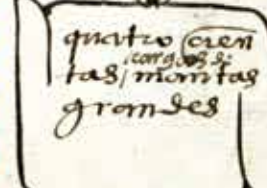 quatro cien
cargas de
tas / mantas
grandes